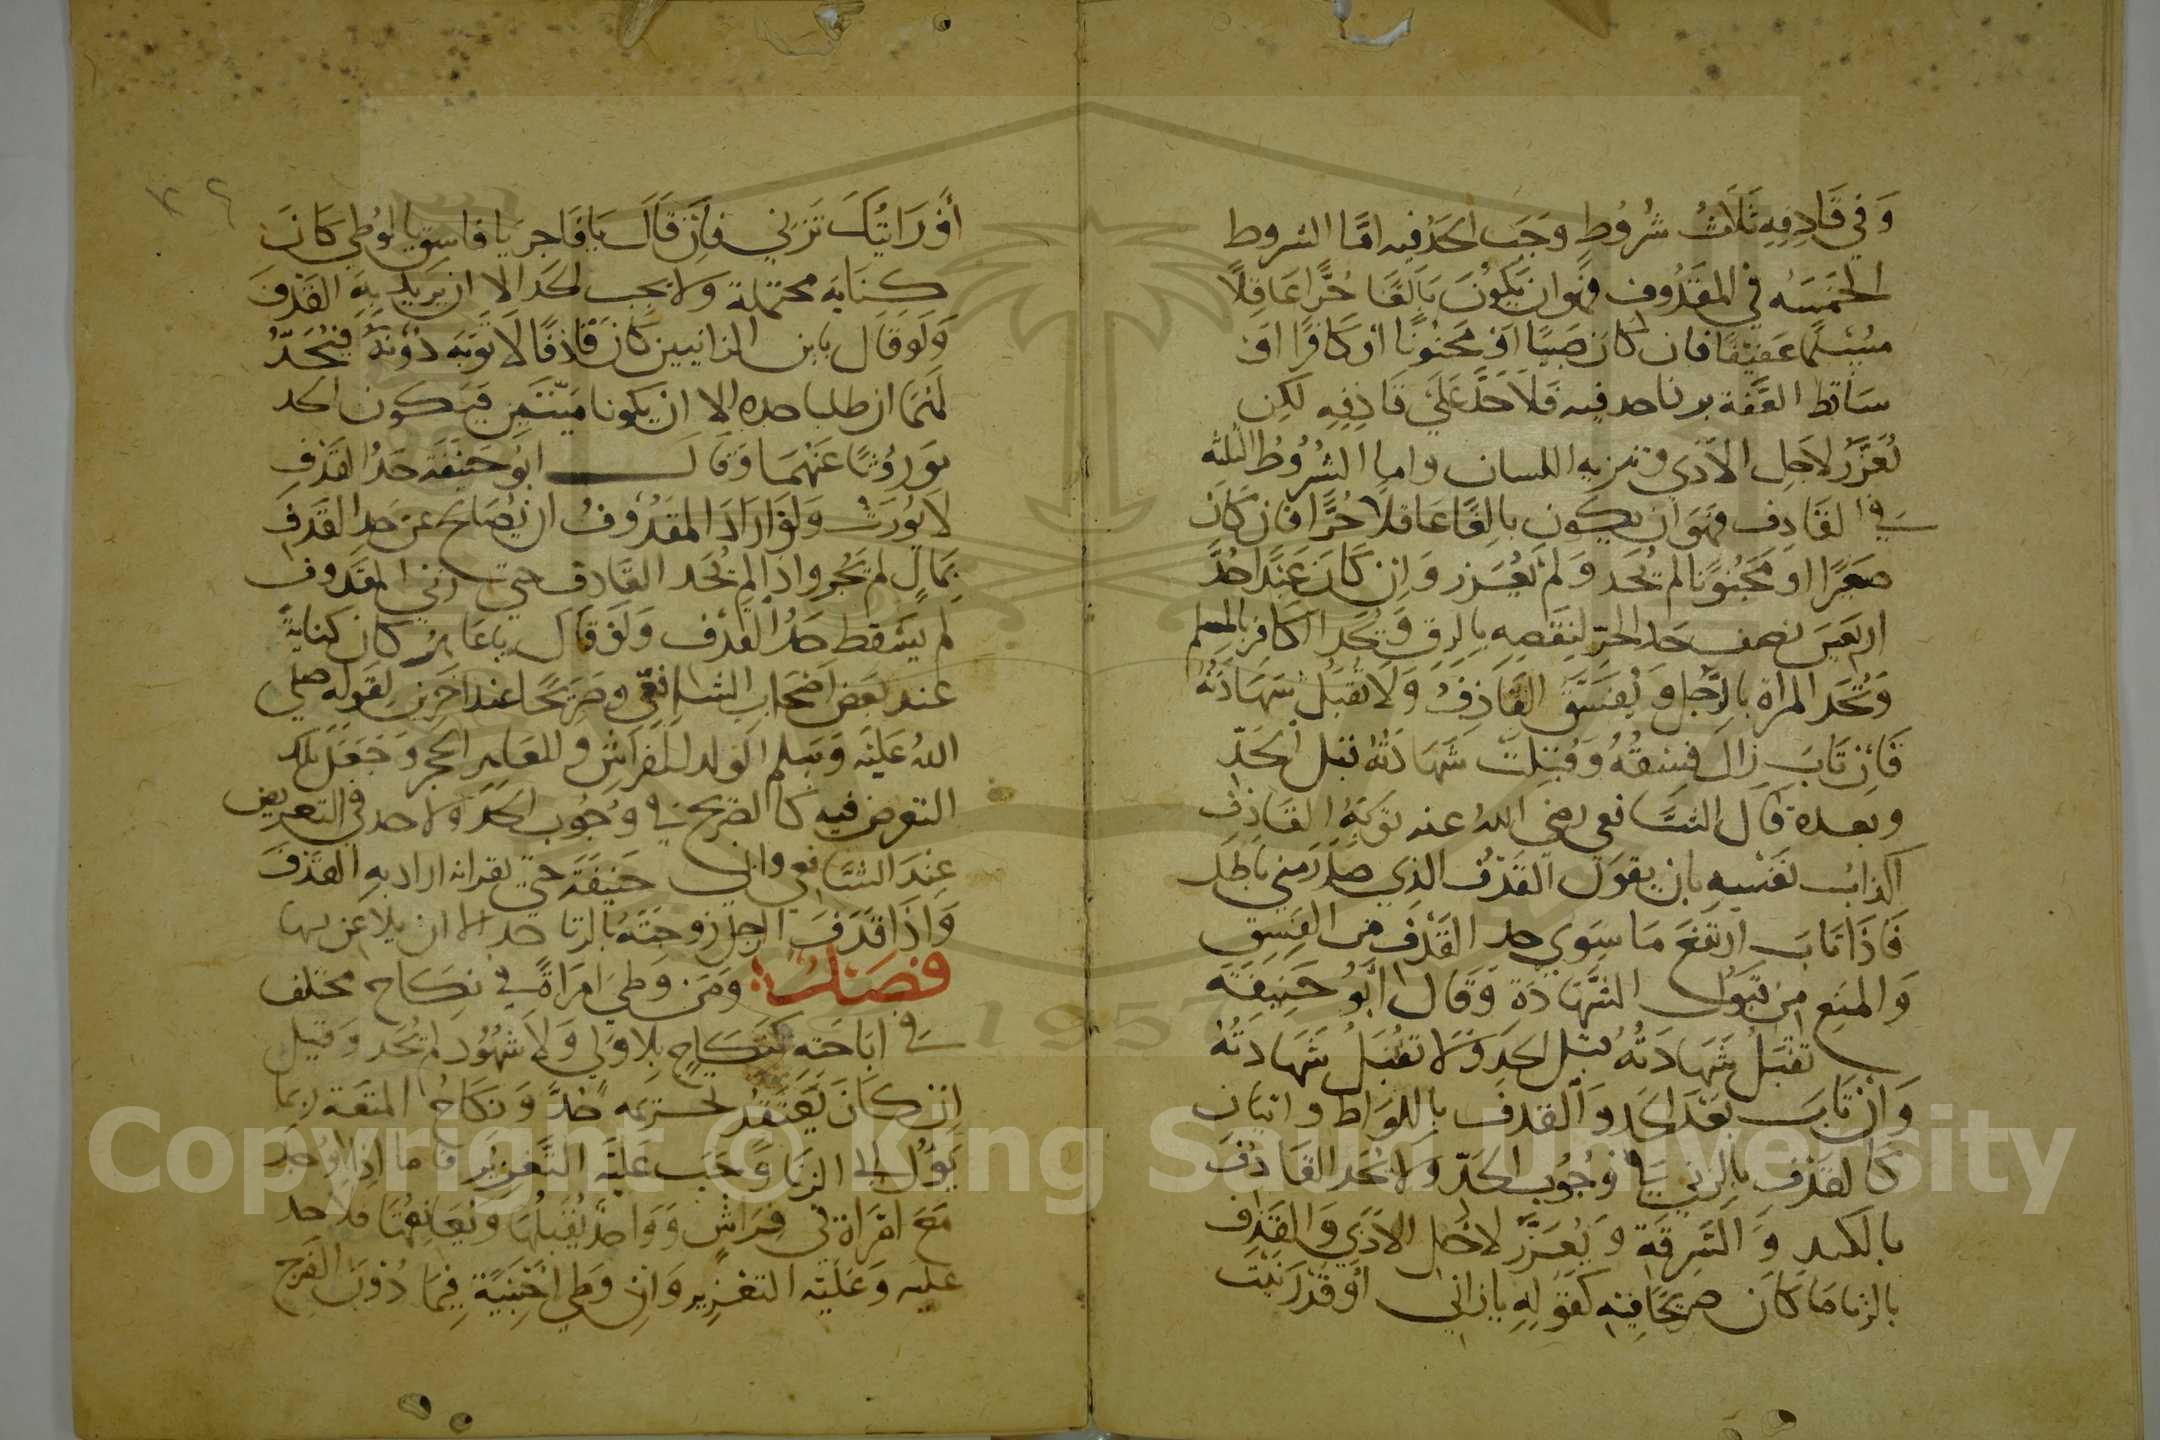 وَفِي قَاذِفِهِ ثَلَاثُ شُرُوطٍ وَجَبَ الحَدُّ فيه امَّا الشروط
الخَمْسَه في المقَذُوف فهوان يَكُونَ بَالِغًا حُرًّا عَاقِلًا
مُسْلمًا عَفِيفًا فان كان صَبيًا اوْ مَجنُونًا او كَافرًا اوْ
سَاقط العفَّة بزنا حد فيه فَلَا حَدَّ عَلَى قَاذِفِهِ لَكِن
يُعَزَّرُ لاجَل الاَذي وتنزيه اللسان واما الشُرُوطُ الثلثه
في القَاذِف فهوَ ان يكون بالِغًا عَاقلًا حُرًّا فان كَانَ
صغيرًا او مَجْنُونا لم يُحَد وَلم يُعَزر وَاِن كَانَ عَبْدًا حُدَّ
اربَعين نصف حَد الحرّ لنقصِهِ بالرِق وَيُحَد الكافر بالمسلم
وَتُحَد المراة بالرَّجل وَيُفَسَّق القَاذِفُ وَلَا تقُبَلُ شهَادَتُهُ
فَاِن تَابَ زَالَ فِسْقُهُ وَقُبِلَتْ شَهَادَتُهُ قبل الحَدّ
وبعده قال الشَّافعي رضي اللهُ عنه تَوبَةُ القَاذِف
اكذابُ نفسِه بان يقول القَذْف الذي صَدَرَ مني باطل
فَاذَا تابَ ارتفَعَ مَا سِوَي حد القَذْف من الفِسق
وَالمنع من قبول الشَّهادَة وَقال ابُو حَنيفة
تُقْبَلُ شَهادَتُهُ قبل الحَد وَلا تقُبَلُ شَهَادَتُهُ
وَانْ تَابَ بَعْدَ الحَد وَالقذف باللوَاط واتيان
كالقذف بالزني في وُجُوب الحَدّ وَلا يُحَد القَاذفُ
بالكفر وَالسَّرِقَة وَيُعَزَّرُ لاجل الاذَي وَالقذف
بالزنا مَا كَانَ صَريحًا فيه كقَوْلِهِ يا زاني أو قَدْ زَنَيْتَ
أوْ رَايْتُكَ تَزني فاِن قَالَ يَا فَاجر يَا فاسق يا لوُطي كانَ
كِنَاية محتملة وَلا يجب الحَد الا ان يريد بِهِ القذفَ
وَلو قال يابن الزانيين كان قاذفًا لابَوَيه دُونَهُ فيُحَدُّ
لهَمَا ان طلبا حده الا ان يكونا مَيّتَيْن فيَكون الحد
مَورُوثًا عَنْهما وَقَالَ ابُو حَنيفَة حَدُّ القَذفِ
لا يُورَث وَلَوْ ارَادَ المقذُوفُ ان يُصَالح عَن حَد القَذف
بِمَالٍ لم يَجُز واذا لم يُحَد القَاذف حتي زني المقذوف
لم يَسْقط حَدُّ القَذْف وَلَوْ قَال يا عَاهِرُ كان كناية
عند بَعض اصحَاب الشافعي وصَريحًا عند آخَرين لقوله صلي
اللهُ عَليه وَسلم الوَلد للفراش وللعَاهِر الحجرُ وَجَعَلَ مالك
التعرض فيه كالصّريح في وُجُوب الحَدّ ولا حد في التعريض
عِنْدَ الشَّافعي وابي حَنيفَة حَتي يقر انه اراد به القذفَ
وَاذَا قَذَفَ الرجل زوجَتَهُ بالزنا حد الا ان يلاعن بها
فَصْل وَمَن وَطِي امرَاةً في نِكَاح مختلف
في ابَاحَتِهِ كنكَاحٍ بلا وَلي وَلا شُهُود لم يُحَد وَقيل
ان كَانَ يَعتَقدُ تَحريمه حُدَّ وَنكَاحُ المتعَة ربما
يَؤُل الي الزنا وَجَب عَلَيه التَّعزيرُ فاما اذا وُجدَ
مَعَ امْرَاة في فِرَاشٍ وَوَاحد يُقَبلُهَا وَيُعَانِقُهَا فلا حد
عليه وَعَليه التعزير وَانْ وَطي اجْنبيَّة فيمَا دُونَ الفرج